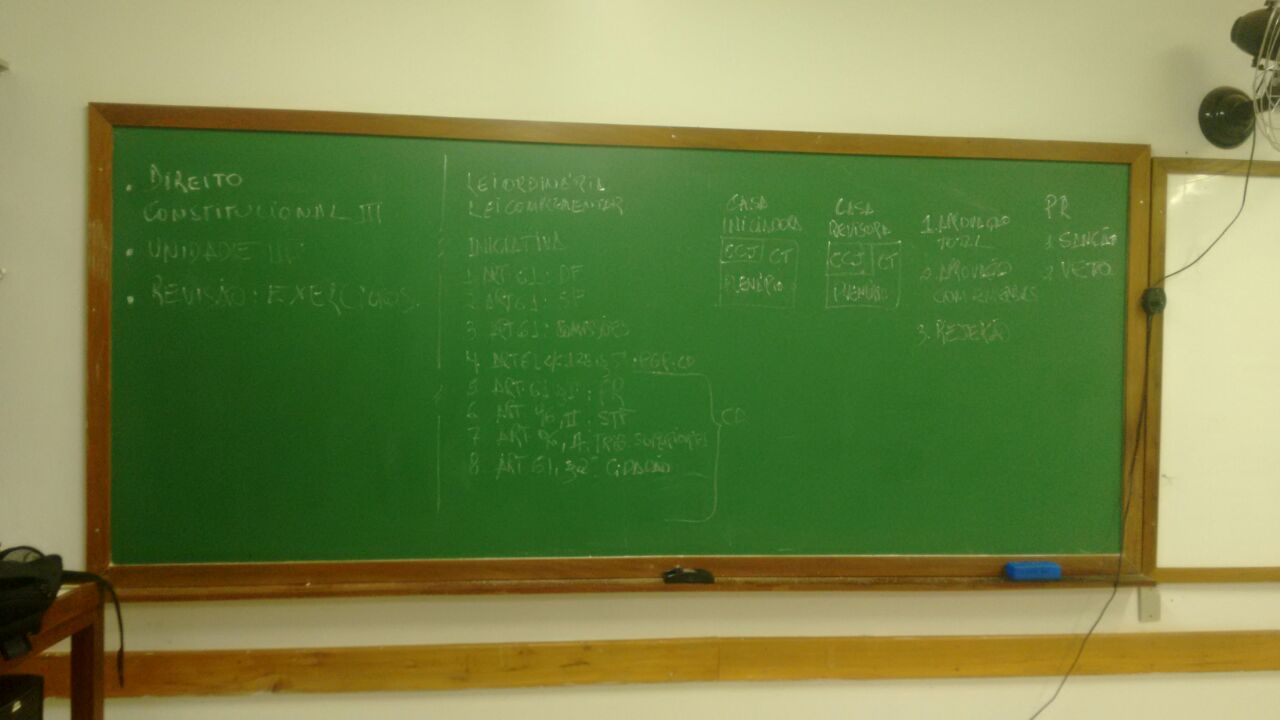 • DIREITO
CONSTITUCIONAL III
• UNIDADE III
• REVISÃO: EXERCÍCIOS
LEI ORDINÁRIA
LEI COMPLEMENTAR
INICIATIVA
1. ART 61: DF
2. ART 61: SF
3. ART 61: COMISSÕES
4. ART 61 C/C 128, § 5º: PGR:
5. ART. 61 : PR
6. ART 96, II: STF
7. ART 96, II. TRIB. SUPERIORES
8. ART 61, § 2º CIDADÃO
CD
CASA
INICIADORA
CCJ CT
PLENÁRIO
CASA
REVISORA
CCJ CT
PLENÁRIO
1. APROVAÇÃO
TOTAL
2. APROVAÇÃO
COM EMENDAS
3. REJEIÇÃO
PR
1. SANÇÃO
2. VETO